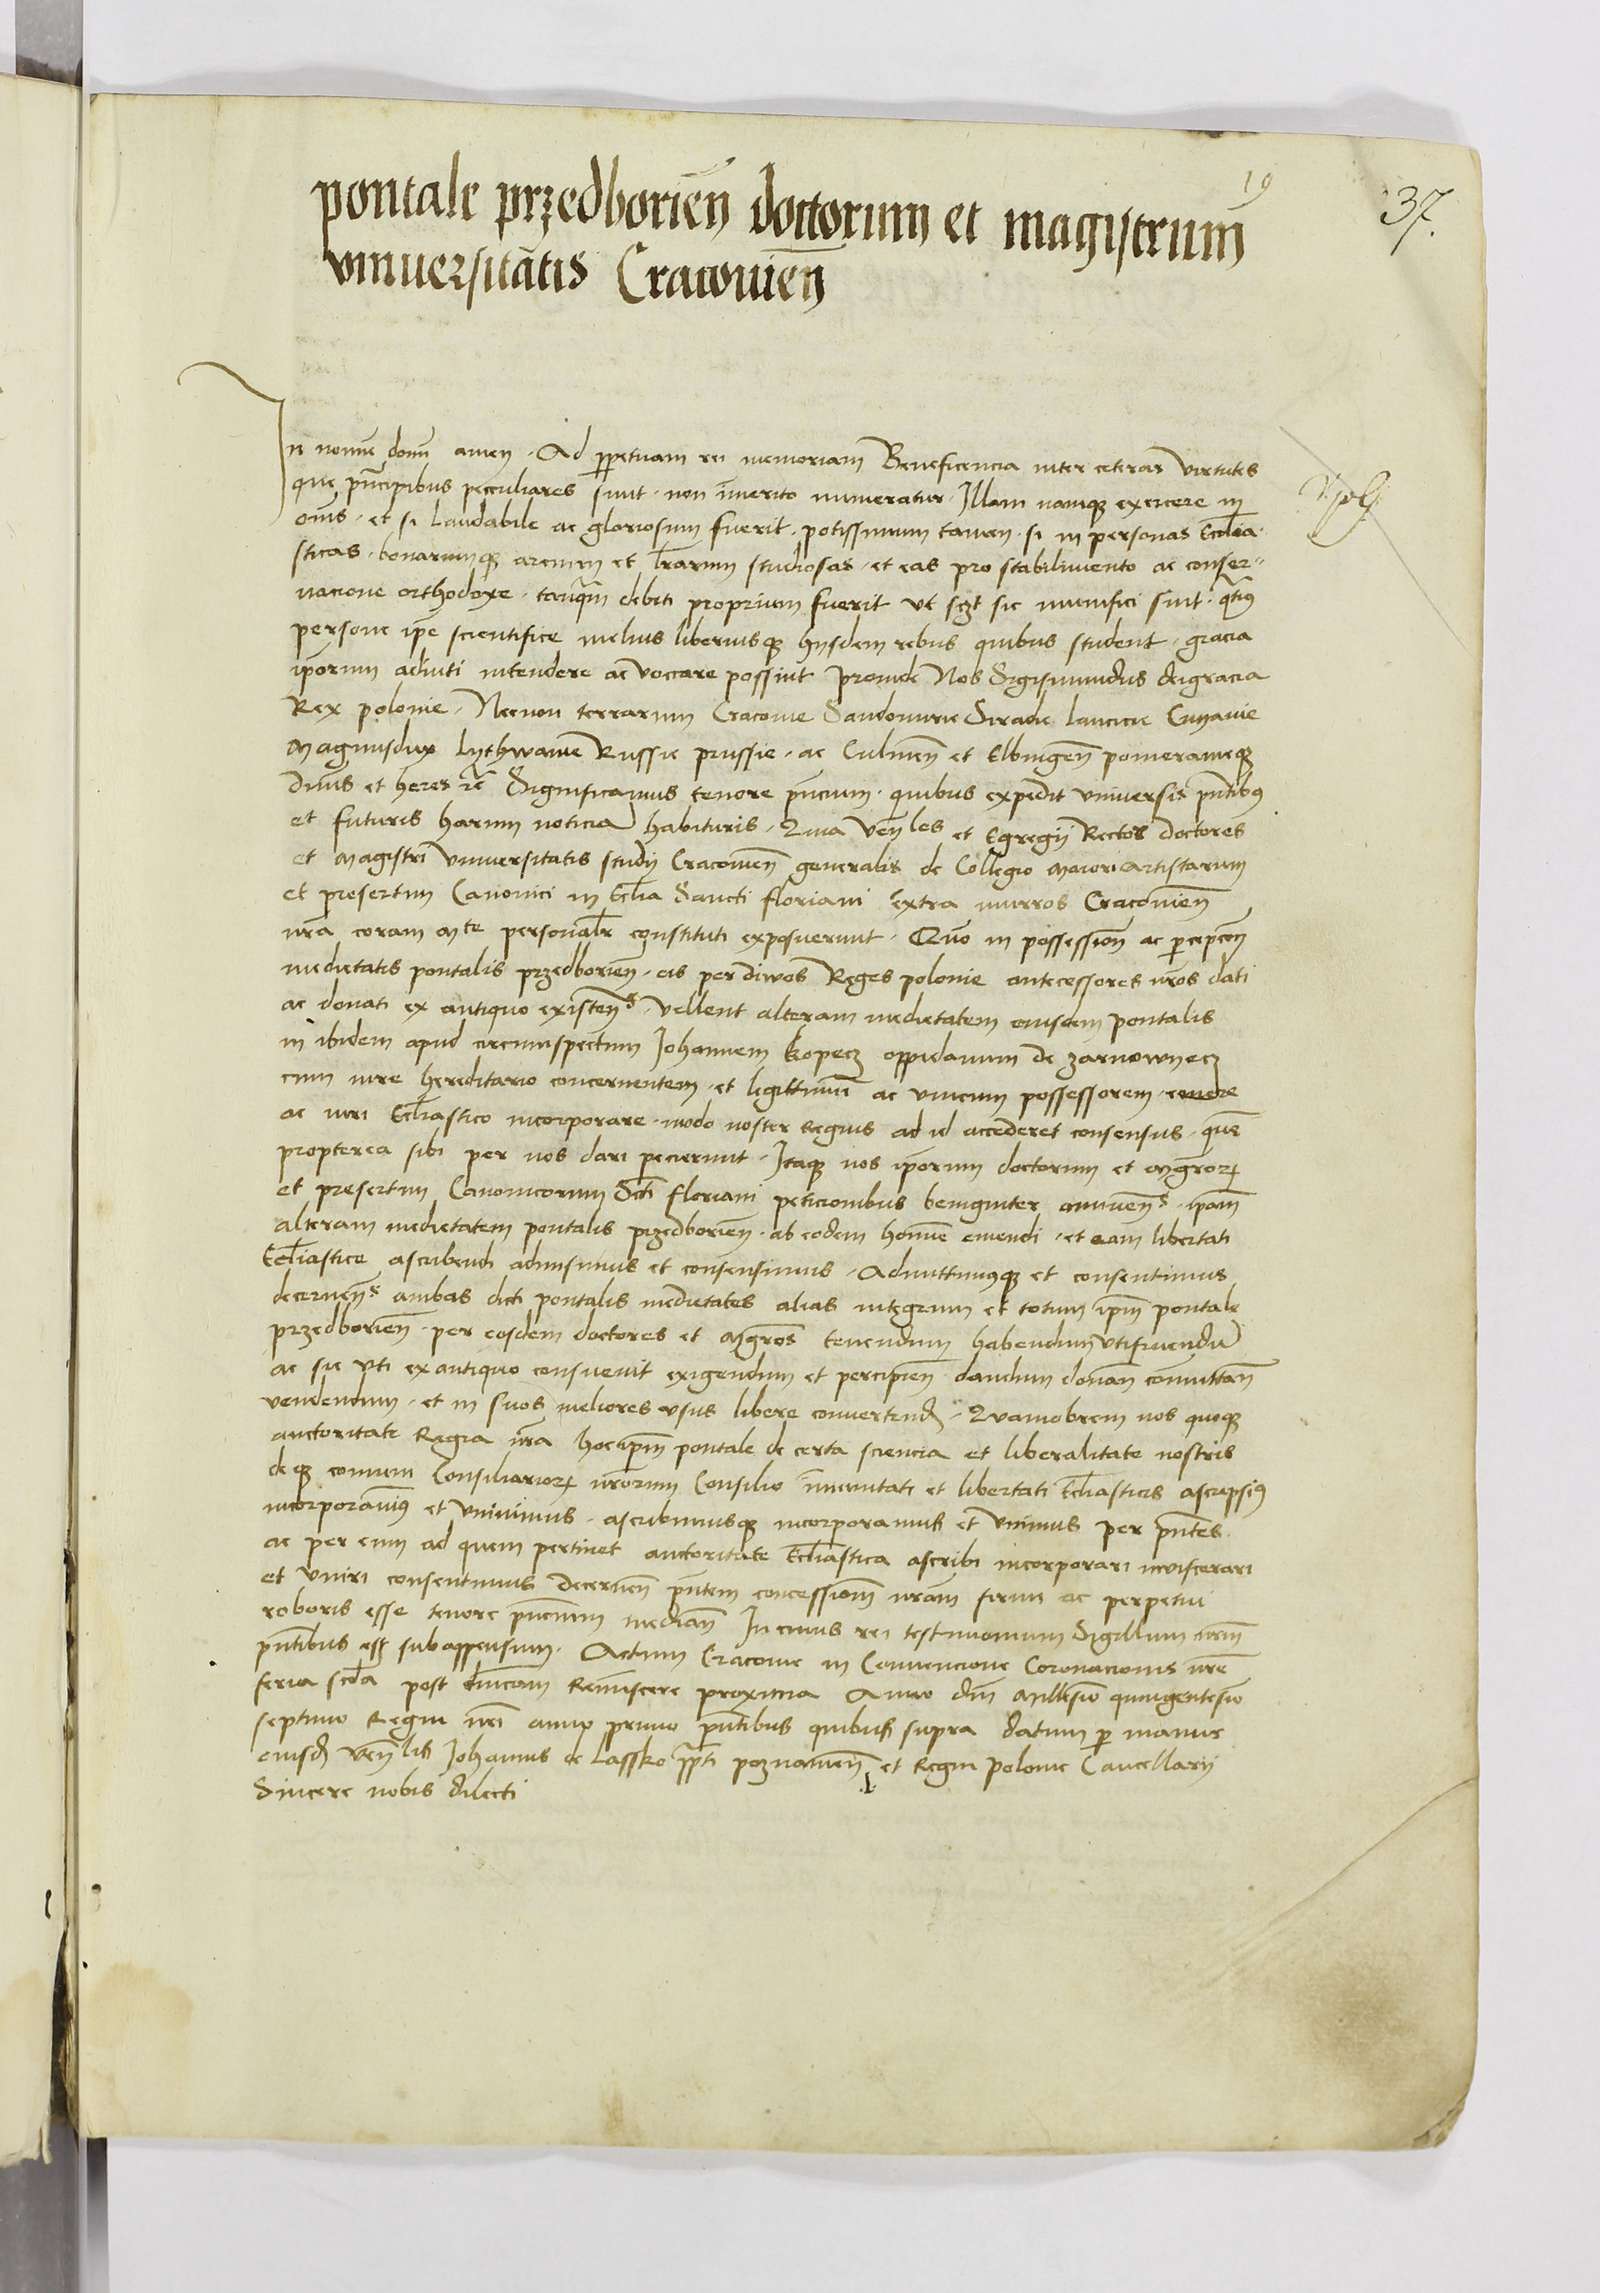 19
37.
pontale przedborien̄ doctorum et magistrum
vniuersitatis Cracouien̄
In nomīe domī amen. Ad ꝑpetuam rei memoriam Beneficencia inter ceteras virtutes
que pn̄cipibus peculiares sunt. non īmerito numeratur. Illam namqꝫ exercere in
om̄s. et si laudabile ac gloriosum fuerit. potissimum tamen. si in personas Eccl̄ia
sticas. bonarumqꝫ arcium et lr̄arum studiosas. et eas pro stabilimento ac conser-
uacione orthodoxe. tanq̄m debiti proprium fuerit vt sꝫt sic munifici sint. q̄tin9
persone ip̄e scientifice melius liberiusqꝫ hijsdem rebus quibus student. gracia
ip̄orum adiuti intendere ac voccare possint Proinde Nos Sigismundus deigracia
Rex polonie. Necnon terrarum Cracouie Sandomirie Siradie lancicie Cuyauie
Magnusdux lythwanie Russie prussie. ac Culmen̄ et Elbingen̄ pomeranieqꝫ
Dn̄us et heres ꝛc̄ Significamus tenore pn̄cium. quibus expedit vniuersis pn̄tibꝰ
et futuris harum noticiā habituris. Quia ven̄les et Egregij Rector doctores
et Magistri vniuersitatis studij Cracouien̄ generalis de Collegio maiori artistarum
et presertim Canonici in Ecl̄ia Sancti floriani extra murros Cracouien̄
nr̄a coram Mte personal̄r constituti exposuerunt. Quō in possession̄ ac ꝑcepcōn
medietatis pontalis przedborien̄. eis per diwos Reges polonie antecessores nr̄os dati
ac donati ex antiquo existen̄s. vellent alteram medietatem eiusdem pontalis
in ibidem apud circumspectum Johannem kopecz oppidanum de zarnownecz
cum iure hereditario concernentem. et legittimū ac vnicum possessorem. emere
ac iuri Ecl̄iastico incorporare. modo noster Regius ad id accederet consensus. quē
propterea sibi per nos dari pecierunt. Itaqꝫ nos ip̄orum doctorum et Mgr̄orꝝ
et presertim Canonicorum Scti floriani peticionibus benigniter annuen̄s. ip̄am
alteram medietatem pontalis przedborien̄. ab eodem homīe emendi. et eam libertati
Ecl̄iastice ascribendi admisimus et consensimus. Admittimusqꝫ et consentimus
decernen̄s ambas dicti pontalis medietates alias integrum et totum ip̄m pontale
przedborien̄. per eosdem doctores et Mgr̄os tenendum habendum vtifruendū
ac sic vti ex antiquo consueuit exigendum et percipien̄ dandum donan̄ commuttan̄
vendendum. et in suos meliores vsus libere conuertend̄. Quamobrem nos quoqꝫ
auctoritate Regia nr̄a hoc ip̄m pontale de certa sciencia et liberalitate nostris
deqꝫ comuni Consiliariorꝝ nr̄orum Consilio īmunitati et libertati Ecl̄iasticis ascripsimꝰ
incorporauimꝰ et vniuimus. ascribimusqꝫ incorporamus et vnimus per pn̄tes.
ac per eum ad quem pertinet auctoritate Ecl̄iastica ascribi incorporari inviscerari
et vniri consentimus decernen̄ pn̄tem concessionem nr̄am firmi ac perpetui
roboris esse tenore pn̄cium median̄ In cuius rei testimonium Sigillum nr̄m
pn̄tibus est subappensum. Actum Cracouie in Conuencione Coronacionis nr̄e
feria scd̄a post dn̄icam Reminiscere proxima Anno dn̄i Millesīo quingentesīo
septimo Regni nr̄i anno primo pn̄tibus quibus supra datum ꝑ manus
eiusd̄ ven̄lis Johannis de Lassko p̄pti poznanien̄ et Regni polonie Cancellarij
Sincere nobis dilecti